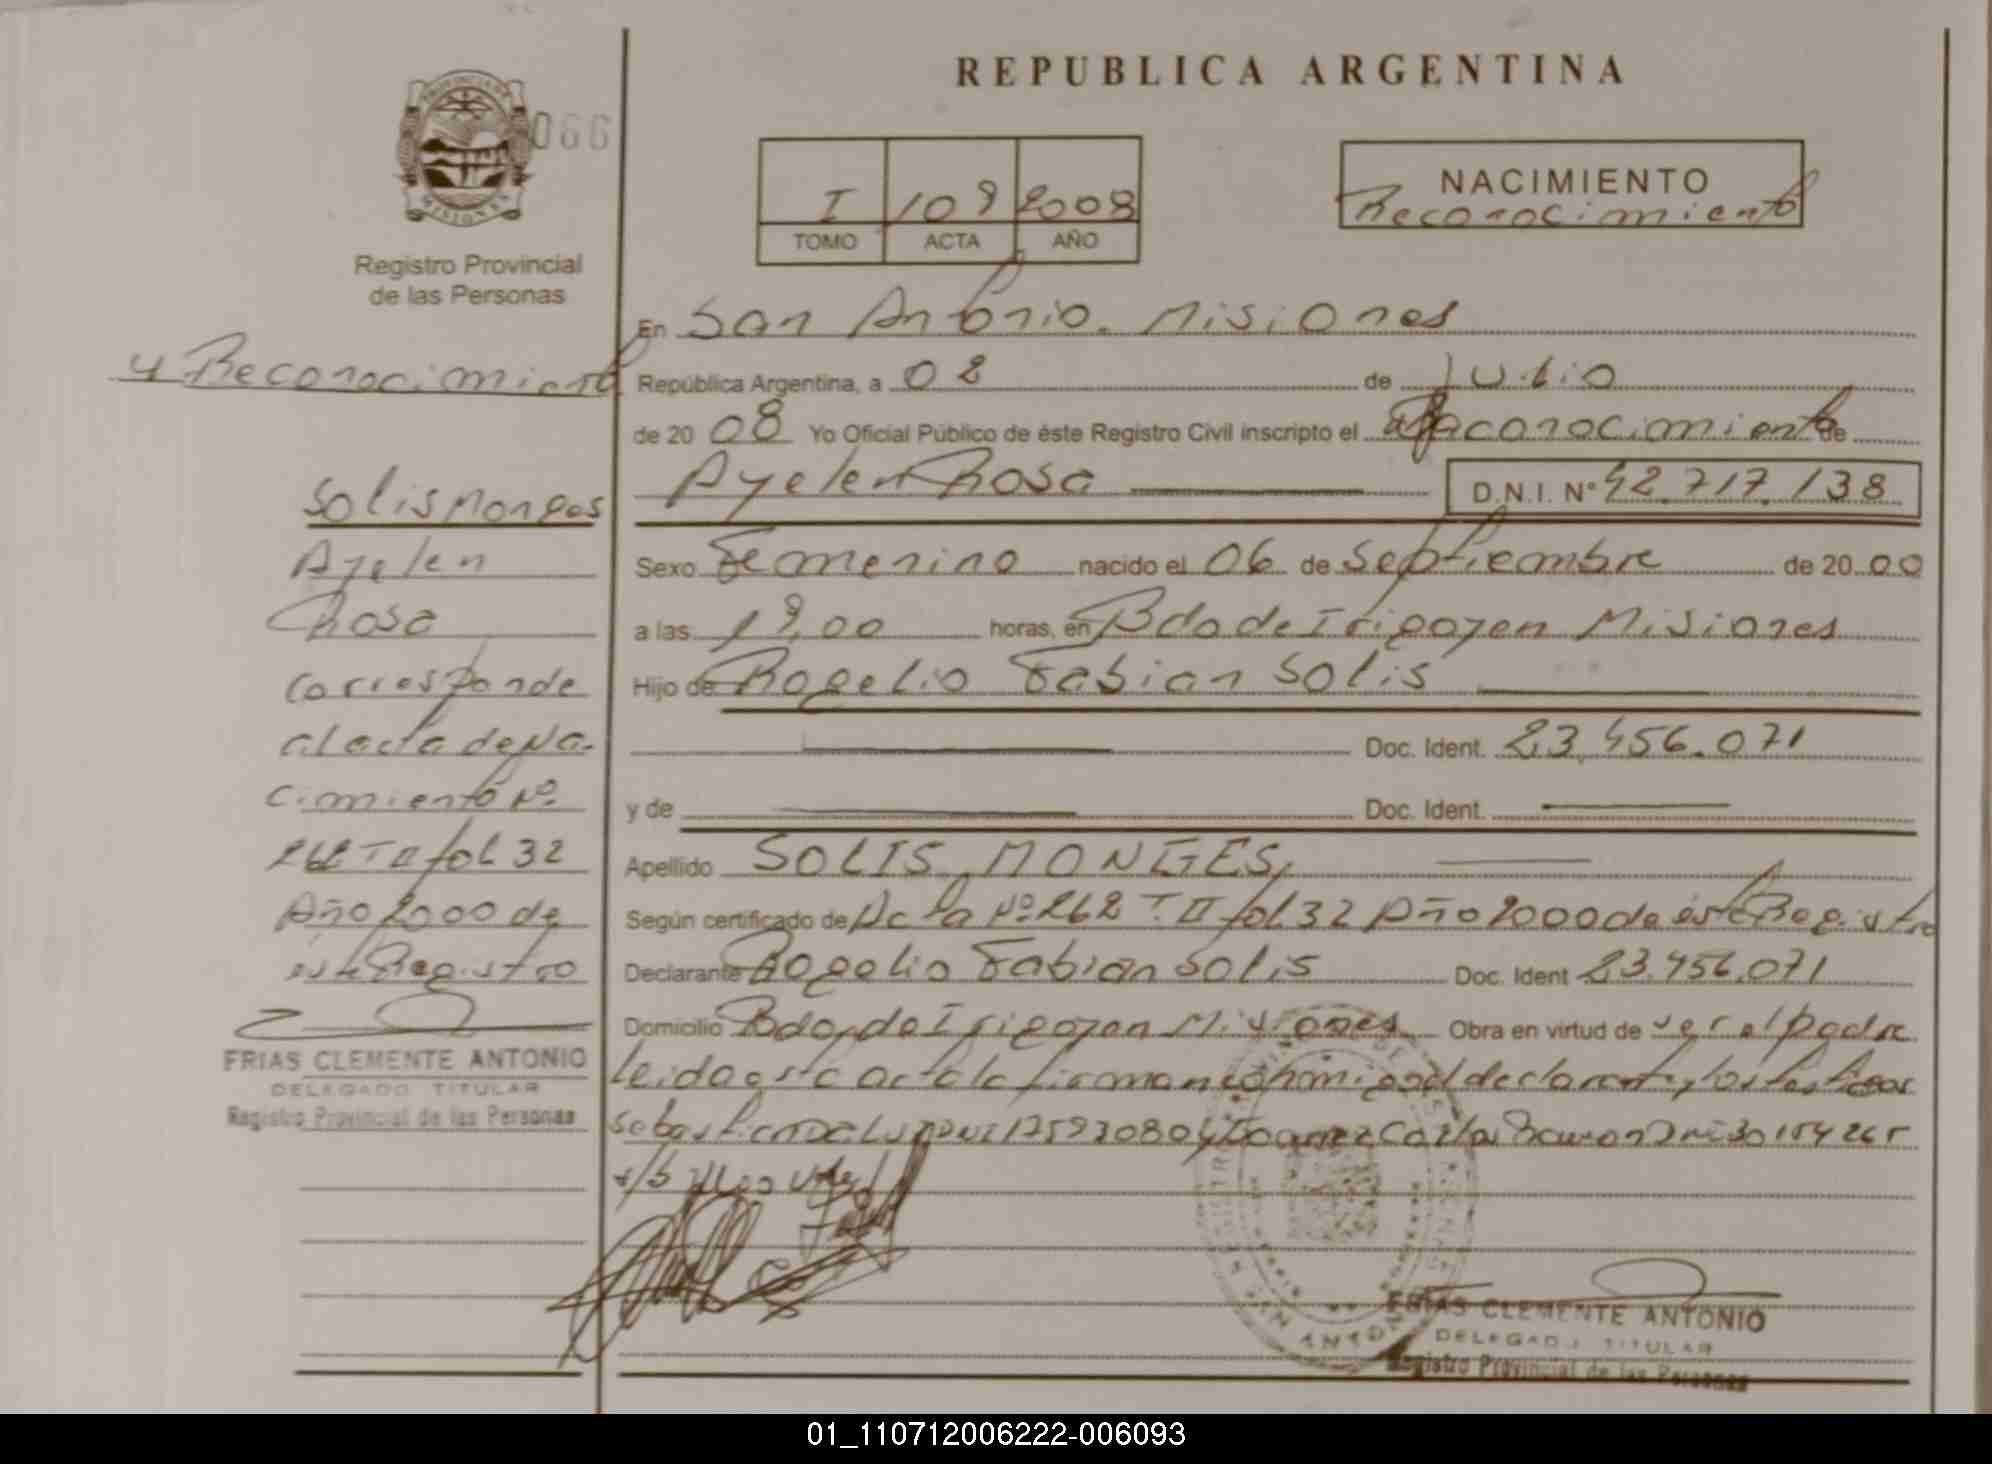 REPUBLICA ARGENTINA
PROVINCIA DE MISIONES
066
Registro Provincial
de las Personas
I 109 2008
TOMO ACTA AÑO
NACIMIENTO
Reconocimiento
y Reconocimiento
Solis Monges
Ayelen
Rosa
corresponde
al acta de Na-
cimiento Nº
262 T II fol 32
Año 2000 de
este Registro
FRIAS CLEMENTE ANTONIO
DELEGADO TITULAR
Registro Provincial de las Personas
En San Antonio. Misiones
República Argentina, a 02 de Julio
de 2008 Yo Oficial Público de éste Registro Civil inscripto el Reconocimiento de
Ayelen Rosa D.N.I. Nº 42.717.138
Sexo Femenino nacido el 06 de Septiembre de 2000
a las 19,00 horas, en Bdo de Irigoyen Misiones
Hijo de Rogelio Fabian Solis
Doc. Ident. 23.456.071
y de Doc. Ident.
Apellido SOLIS MONGES,
Según certificado de Acta Nº 262 T. II fol 32 Año 2000 de este Registro
Declarante Rogelio Fabian Solis Doc. Ident 23.456.071
Domicilio Bdo, de Irigoyen Misiones Obra en virtud de ser el padre
leida esta acta la firman conmigo el declarante y los testigos
Sebastian Da Luz DNI 17593080 y Carlos Ramon Dni 30154265
FRIAS CLEMENTE ANTONIO
DELEGADO TITULAR
Registro Provincial de las Personas
01_110712006222-006093